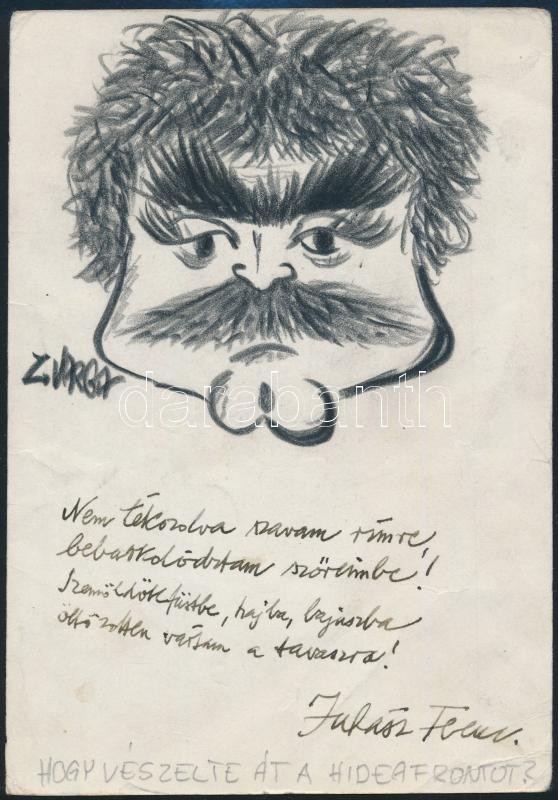 Z. VARGA
darabanth
Nem tékozolva szavam rímre,
beburkolództam szőreimbe!
Szemöldökfüstbe, hajba, bajuszba
öltözötten vártam a tavaszra!
Juhász Ferenc.
HOGY VÉSZELTE ÁT A HIDEGFRONTOT?